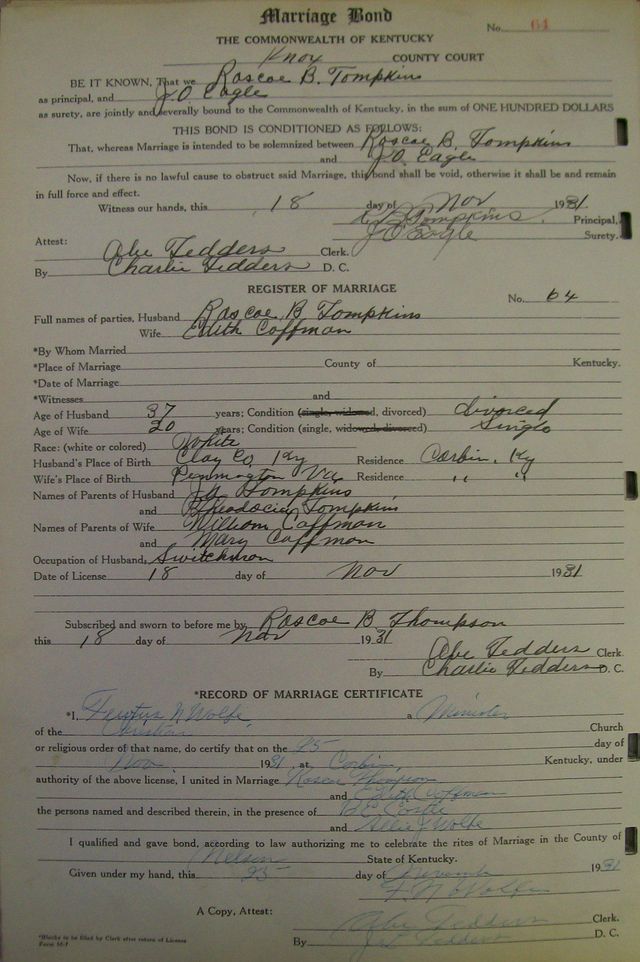 Marriage Bond
No. 61
THE COMMONWEALTH OF KENTUCKY
Knox COUNTY COURT
BE IT KNOWN, That we Roscoe B. Tompkins
as principal, and J.O. Eagle
as surety, are jointly and severally bound to the Commonwealth of Kentucky, in the sum of ONE HUNDRED DOLLARS
THIS BOND IS CONDITIONED AS FOLLOWS:
That, whereas Marriage is intended to be solemnized between Roscoe B. Tompkins
and J.O. Eagle
Now, if there is no lawful cause to obstruct said Marriage, this bond shall be void, otherwise it shall be and remain
in full force and effect.
Witness our hands, this 18 day of Nov 1931
R B Tompkins. Principal,
J O Eagle Surety.
Attest: Abe Tedders Clerk.
By Charlie Tedders D. C.
REGISTER OF MARRIAGE
No. 64
Full names of parties, Husband Roscoe B Tompkins
Wife Edith Coffman
*By Whom Married
*Place of Marriage County of Kentucky.
*Date of Marriage
*Witnesses and
Age of Husband 37 years; Condition (single, widowed, divorced) divorced
Age of Wife 20 years; Condition (single, widowed, divorced) Single
Race: (white or colored) White
Husband's Place of Birth Clay Co, Ky Residence Corbin, Ky
Wife's Place of Birth Pennington Va Residence " "
Names of Parents of Husband Tompkins
and Theodocia Tompkins
Names of Parents of Wife William Coffman
and Mary Coffman
Occupation of Husband, Switchman
Date of License 18 day of Nov 1931
Subscribed and sworn to before me by Roscoe B Thompson
this 18 day of Nov 1931
Abe Tedders Clerk.
By Charlie Tedders D. C.
*RECORD OF MARRIAGE CERTIFICATE
*I, N Wolfe, a Minister
of the Christian Church
or religious order of that name, do certify that on the 25 day of
Nov. 1931, at Corbin, Kentucky, under
authority of the above license, I united in Marriage Roscoe Thompson
and Edith Coffman
the persons named and described therein, in the presence of
and J Wolfe
I qualified and gave bond, according to law authorizing me to celebrate the rites of Marriage in the County of
Nelson State of Kentucky.
Given under my hand, this 25 day of November 1931
F. N. Wolfe
A Copy, Attest: Abe Tedders Clerk.
By Tedders D. C.
*Blanks to be filled by Clerk after return of License